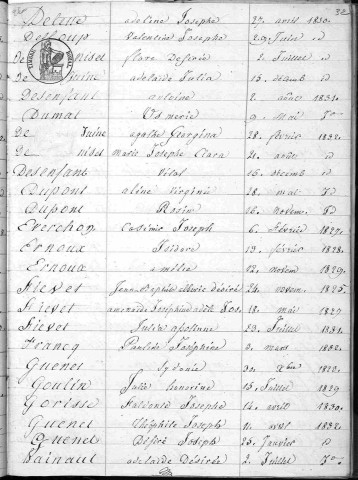 32
Delene adeline Josephe 27. avril 1830.
Deloup Valentine Josephe 29. Juin id
De nisel flore Desirée 2. Juillet id
De mine adelaide Julia 15. décemb id
Desenfant antoine 2. août 1831.
Dumal Osmerie 9. mai
De agathe Georgina 28. février 1832.
De nisel marie Josephe Clara 21. août id
Desenfant Vital 16. décemb id
Dupont aline Virginie 28. mai
Dupont Rosine 16. novem.
Everchon Casimir Joseph 6. février 1827.
Ernoux Isidore 19. février 1828.
Ernoux amélie 12. novem 1829.
Fievet Jean Baptiste Marie désiré 24. novem. 1825.
Fievet Jos. 18. mai 1827
Fievet Julie apolinne 23. Juillet 1831.
Francq Pauline Joséphine 3. mars 1832.
Guenet Sydonie Xbre 1828.
Goulin Julie 15. Juillet 1829
Gorisse Josephe 14. avril 1830.
Guenet Théophile Joseph 11. avril 1832.
Guenet Désiré Joseph 25. Janvier
Hainaut adelaide Désirée 2. Juillet